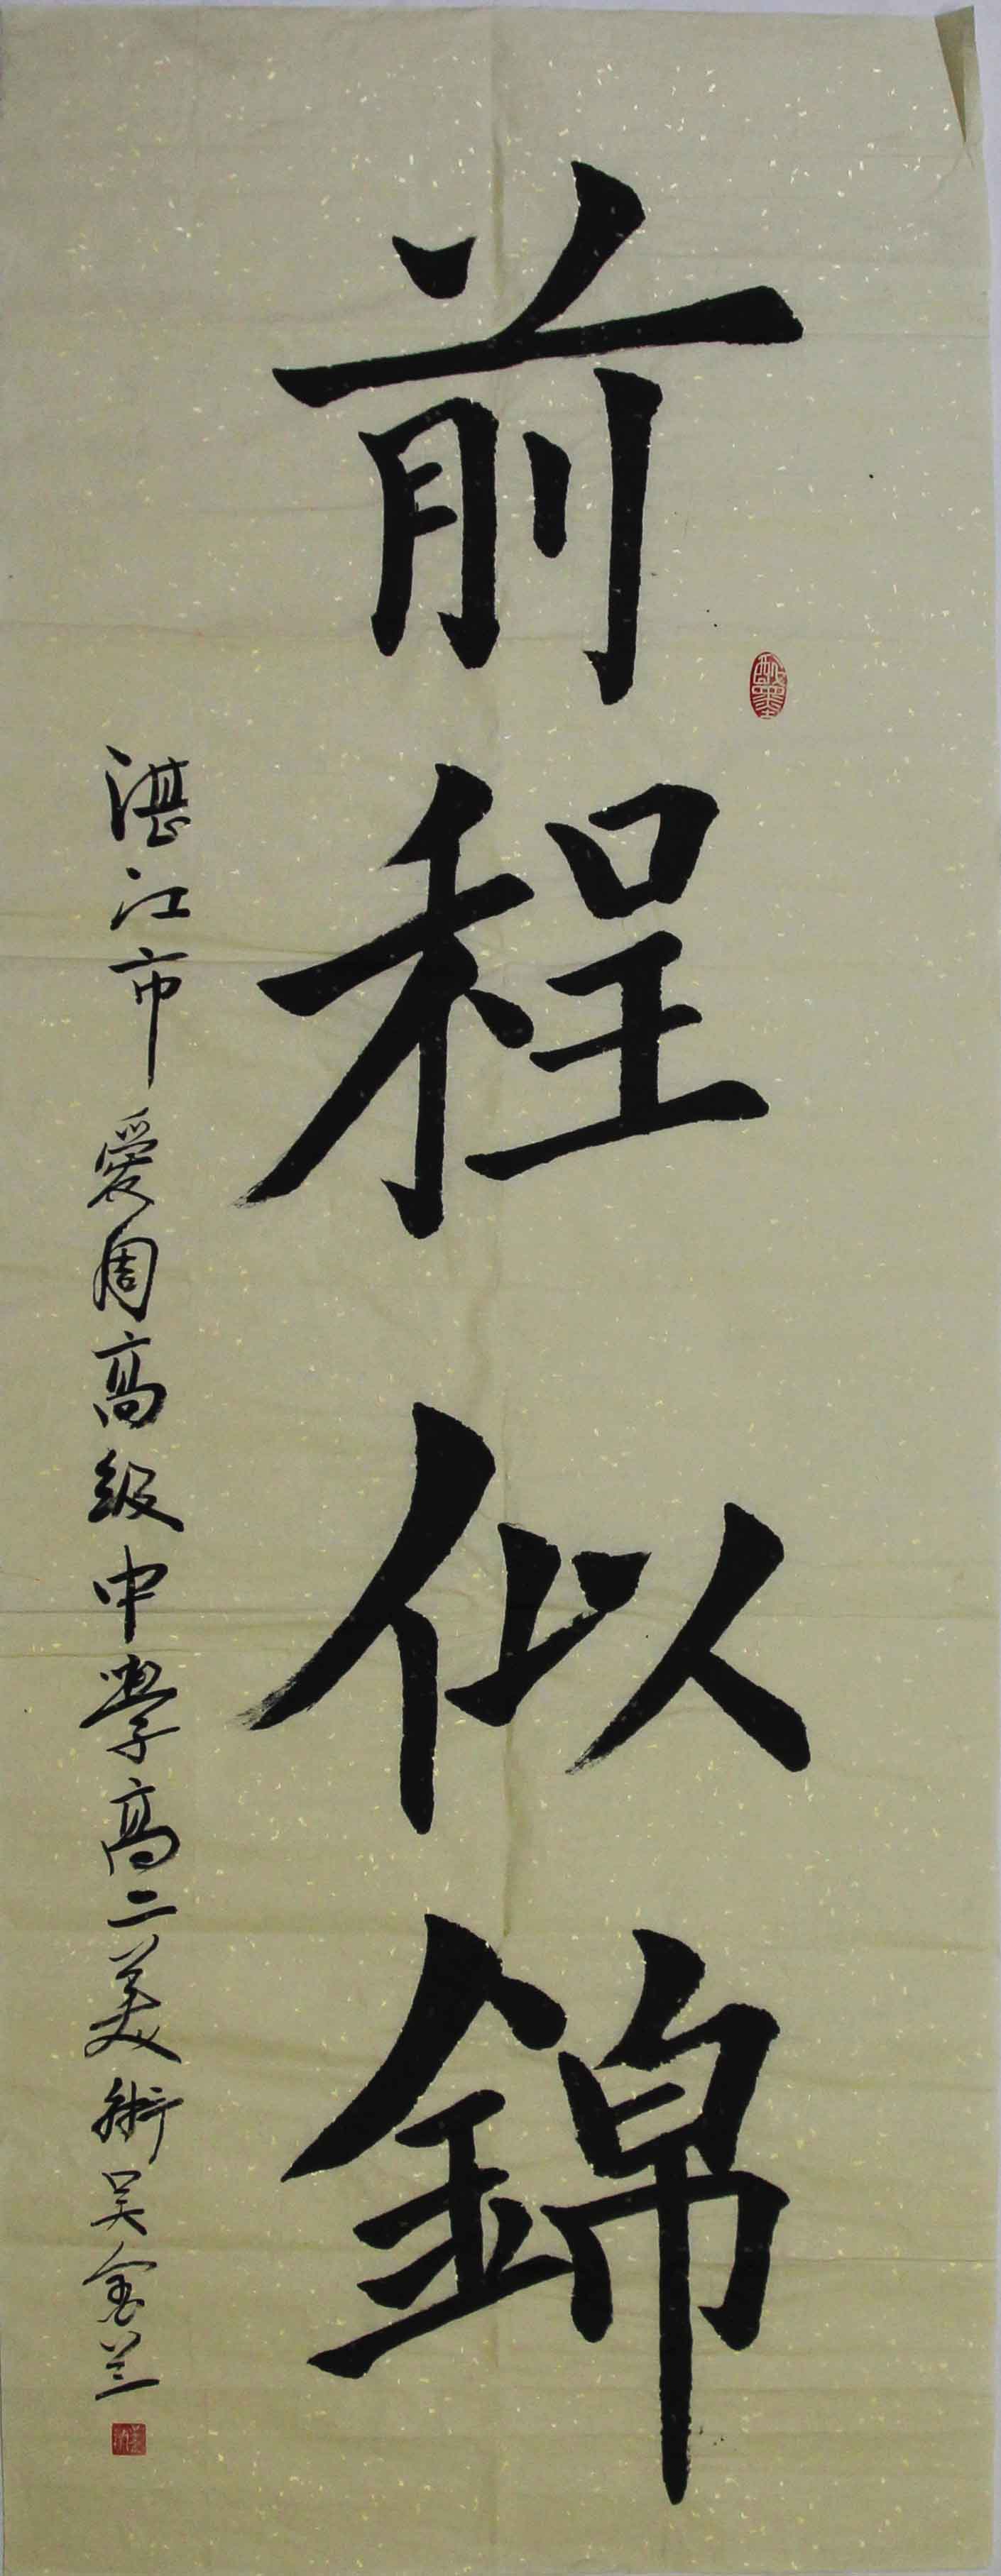 前程似錦
湛江市愛周高级中學高二美術吴金兰